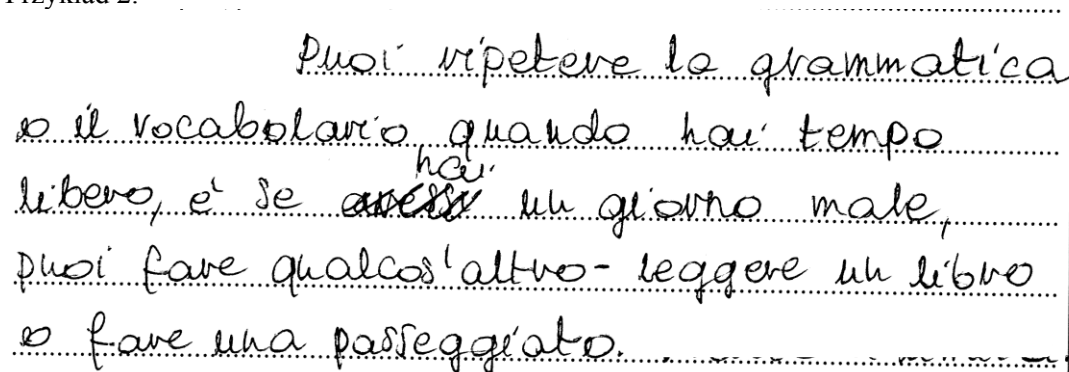 Przykład 2.
Puoi ripetere la grammatica
o il vocabolario quando hai tempo
hai
libero, e' se un giorno male,
puoi fare qualcos'altro - leggere un libro
o fare una passeggiato.